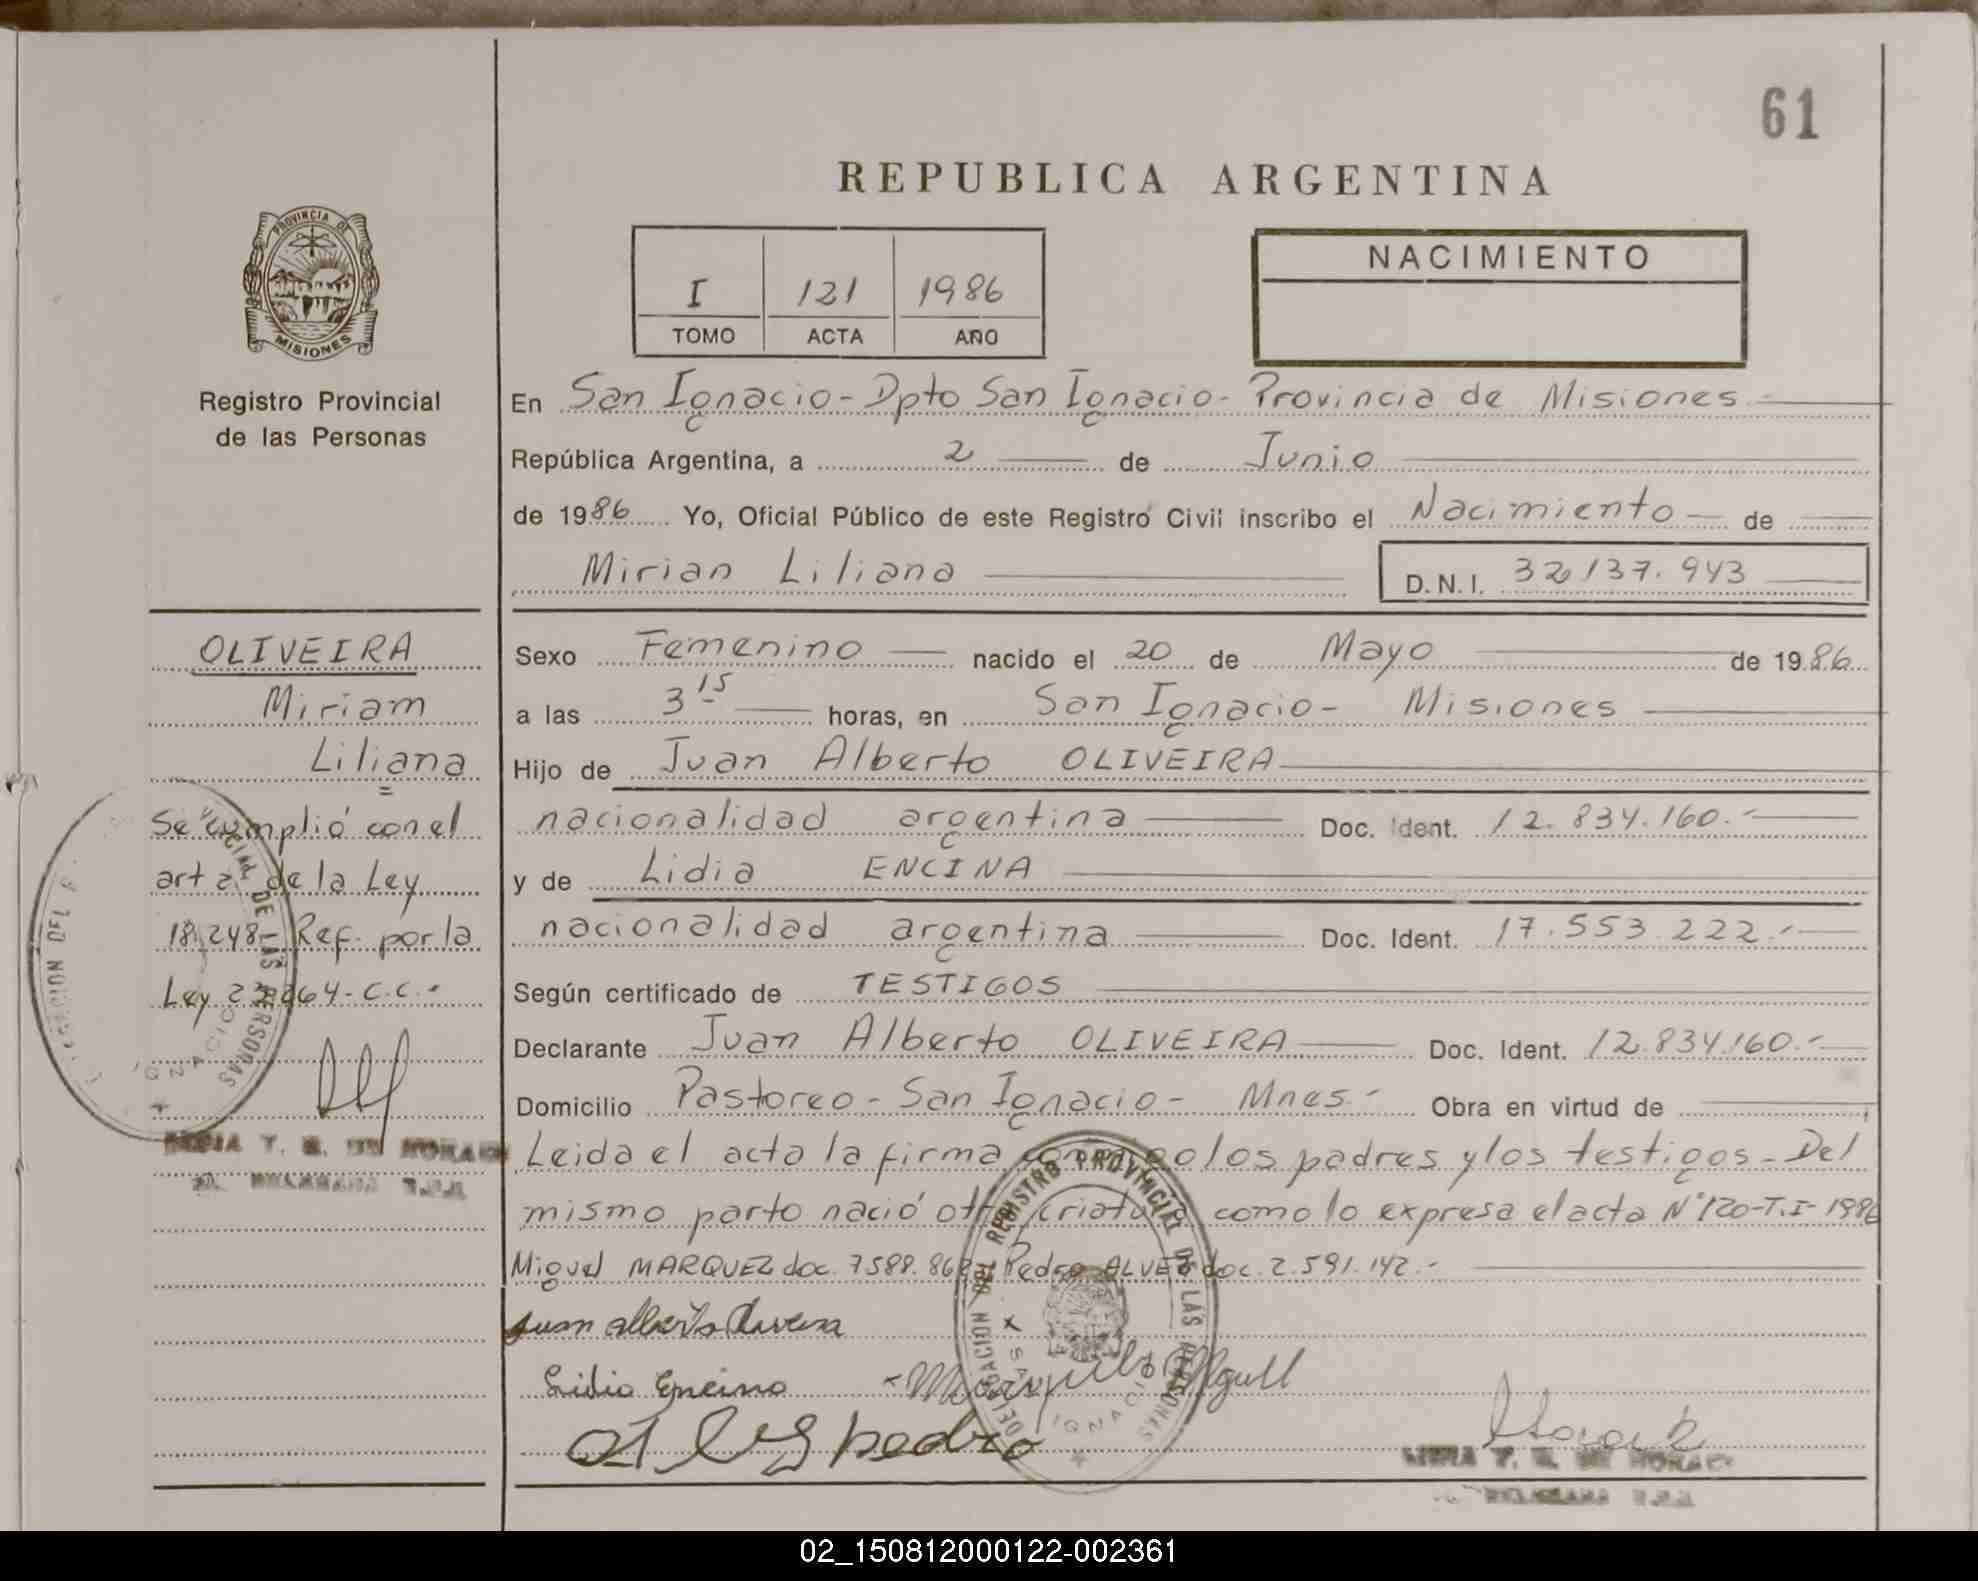 61
REPUBLICA ARGENTINA
PROVINCIA DE
MISIONES
Registro Provincial
de las Personas
I 121 1986
TOMO ACTA AÑO
NACIMIENTO
En San Ignacio - Dpto San Ignacio - Provincia de Misiones
República Argentina, a 2 de Junio
de 1986 Yo, Oficial Público de este Registro Civil inscribo el Nacimiento de
Mirian Liliana D.N.I. 32137.943
OLIVEIRA
Miriam
Liliana
Se cumplió con el
art 2 de la Ley
18.248 - Ref. por la
Ley 264 - C.C.-
Sexo Femenino nacido el 20 de Mayo de 1986
a las 3 15 horas, en San Ignacio - Misiones
Hijo de Juan Alberto OLIVEIRA
nacionalidad argentina Doc. Ident. 12.834.160.-
y de Lidia ENCINA
nacionalidad argentina Doc. Ident. 17.553.222.-
Según certificado de TESTIGOS
Declarante Juan Alberto OLIVEIRA Doc. Ident. 12.834.160.-
Domicilio Pastoreo - San Ignacio - Mnes - Obra en virtud de
Leida el acta la firma los padres y los testigos - Del
mismo parto nació otra criatura como lo expresa el acta N° 120-T.I-1986
Miguel MARQUEZ doc. 7588.86 Pedro ALVEZ doc. 2.591.142.-
Juan Alberto Oliveira
Lidia Encina
pedro
DELEGACION DEL REGISTRO PROVINCIAL DE LAS PERSONAS
SAN IGNACIO
02_150812000122-002361